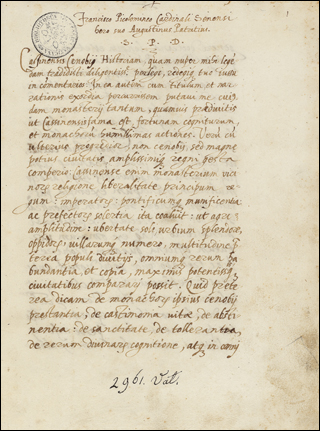 Francisco Picolomineo Cardinali Senensi
suo Augustinus Patritius
S. P. D.
Cassinensis Cenobij Historiam, quam nuper mihi legen
dam tradidisti diligenter perlegi, redegiq tuo iussu
in comentarios. In ea autem cum titulum et nar
rationis exordia percurrissem putavi me cuius
dam monasterij tantum, quamvis praedivitis
ut Cassinensis est fortunas cogniturum
et monachorum humillimas actiones. Verum cum
ulterius progredior, non cenobij, sed magne
potius civitatis, amplissimiq regni gesta
comperio. Cassinense enim monasterium vi
religione liberalitate principum re
gum Imperatorum pontificumq munificentia
ac prefectorum solertia ita coaluit: ut agri
amplitudine: ubertate soli, urbium splendore,
oppidorum, villarumq numero, multitudine
terea populi divitijs, omnium rerum ha
bundantia, et copia, maximis potentissimisq
civitatibus comparari possit. Quid prete
rea dicam de monachorum ipsius cenobij
prestantia, de castimonia vitae, de absti
nentia: de sanctitate, de tollerantia,
de rerum divinarum cognitione, atq in omni
2961. Vat.